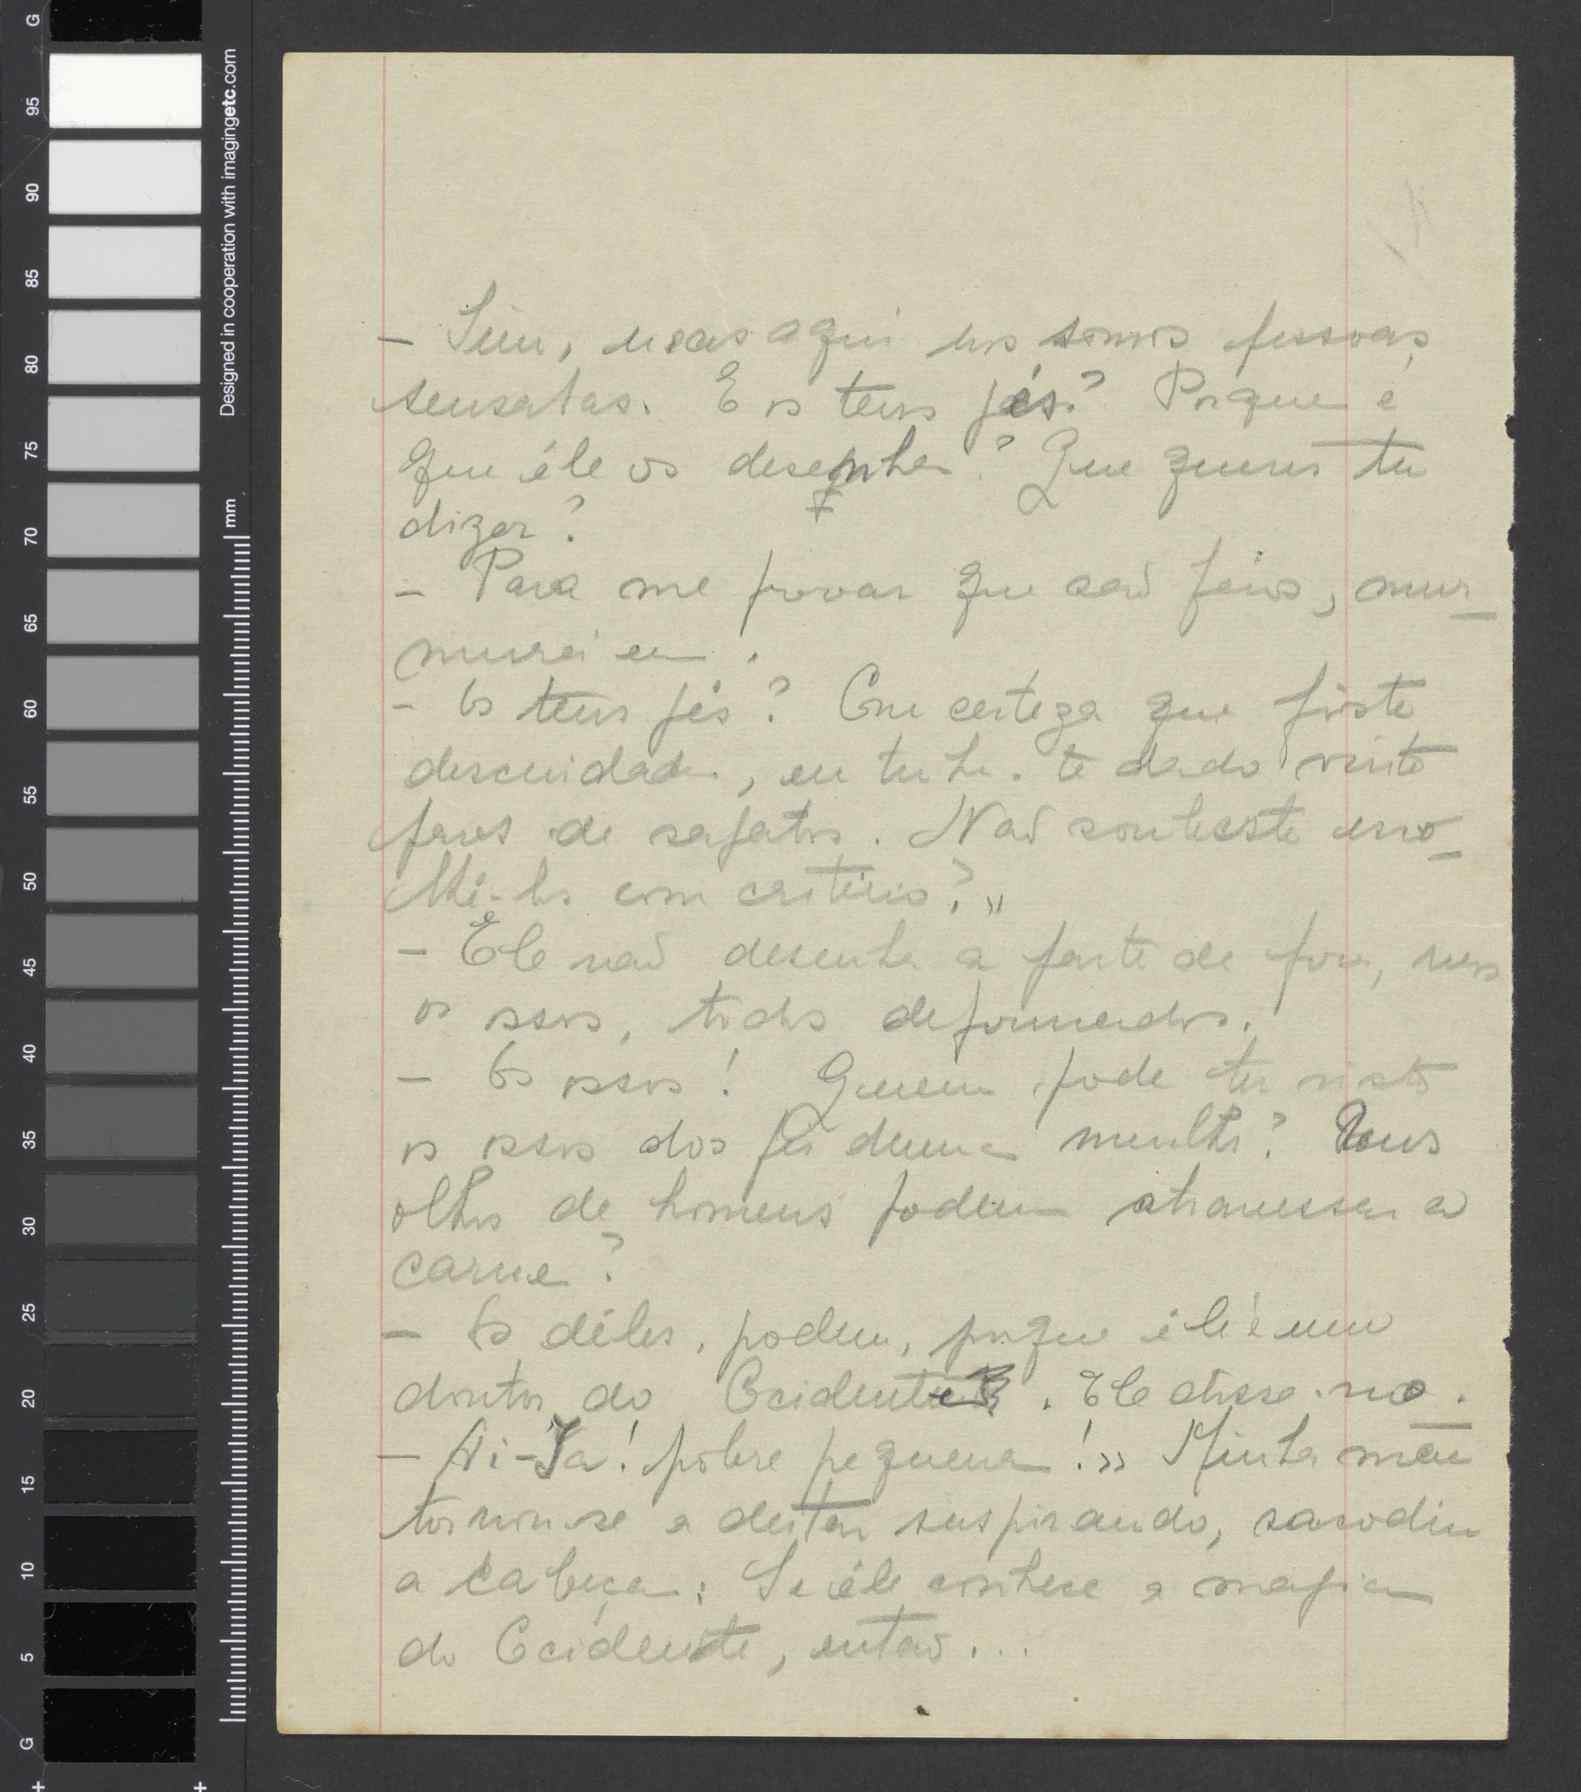 G
95
90
85
80
75
70
65
60
55
50
45
40
35
30
25
20
15
10
5
G
Designed in cooperation with imagingetc.com
mm
- Sim, mas aqui nós somos pessoas
sensatas. E os teus pés? Porque é
que êle os desenha? Que queres tu
dizer?
- Para me provar que são feios, mur-
murei eu.
- Os teus pés? Com certeza que foste
descuidada, eu tenho-te dado vinte
pares de sapatos. Não soubeste esco-
lhê-los com critério?"
- Ele não desenha a parte de fora, mas
os ossos, todos deformados.
- Os ossos! Quem pode ter visto
os ossos dos pés duma mulher? Uns
olhos de homens podem atravessar a
carne?
- Os dêles, podem, porque êle é um
doutor do Ocidente. Ele disse-mo.
- Ai-Ya! pobre pequena!" Minha mãe
tornou-se a deitar suspirando, sacodiu
a cabeça: Se êle conhece a magia
do Ocidente, então...